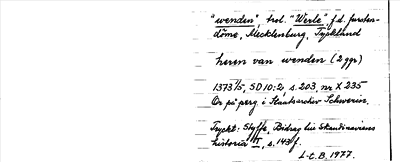 "wenden", hol. "Werle", f.d. fursten-
döme, Mecklenburg, Tyskland
herrn van wenden (2 ggr)
1373 1/5, SD 10:2, s. 203, nr X 235
Or på perg i Staatsarchiv Schwerin.
Tryckt: Styffe, Bidrag till Skandinaviens
historia I, s. 143 f.
L-t. B. 1977.